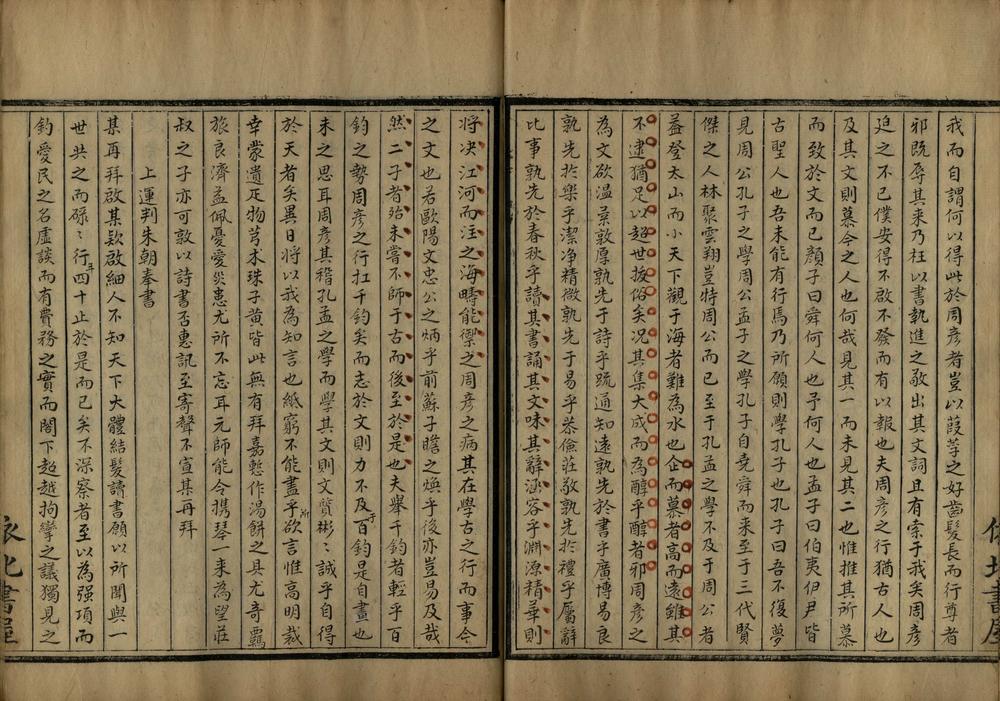 我而自謂何以得此於周彥者豈以葭莩之好齒髮長而行尊者
邪既辱其来乃枉以書執進之敬出其文詞且有索于我矣周彥
迫之不已僕安得不啟不發而有以報也夫周彥之行猶古人也
及其文則慕今之人也何哉見其一而未見其二也惟推其所慕
而致於文而已顏子曰舜何人也予何人也孟子曰伯夷伊尹皆
古聖人也吾未能有行焉乃所願則學孔子也孔子曰吾不復夢
見周公孔子之學周公孟子之學孔子自堯舜而来至于三代賢
傑之人林聚雲翔豈特周公而已至于孔孟之學不及于周公者
葢登太山而小天下觀于海者難為水也企而慕者高而遠雖其
不逮猶足以超世拔俗矣况其集大成而為醇乎醇者邪周彥之
為文欲溫柔敦厚孰先于詩乎疏通知遠孰先於書乎廣博易良
孰先於樂乎潔淨精微孰先于易乎恭儉莊敬孰先於禮乎屬辭
比事孰先於春秋乎讀其書誦其文味其辭涵容乎淵源精華則
将决江河而注之海疇能禦之周彥之病其在學古之行而事今
之文也若歐陽文忠公之炳乎前蘇子瞻之煥乎後亦豈易及哉
然二子者殆未嘗不師于古而後至於是也夫舉千鈞者輕乎百
鈞之勢周彥之行扛千鈞矣而志於文則力不及于百鈞是自畫也
未之思耳周彥其稽孔孟之學而學其文則文質彬彬誠乎自得
於天者矣異日將以我為知言也紙窮不能盡乎所欲言惟高明裁
幸蒙遺疋物芎术珠子黃皆此無有拜嘉慙作湯餅之具尤奇羈
旅良濟益佩憂愛災患尤所不忘耳元師能令携琴一来為望莊
叔之子亦可敦以詩書否惠訊至寄聲不宣某再拜
上運判朱朝奉書
某再拜啟某欵啟細人不知天下大體結髮讀書願以所聞與一
世共之而碌碌行年四十止於是而已矣不深察者至以為强項而
釣愛民之名虛談而有費務之實而閣下超越拘攣之議獨見之